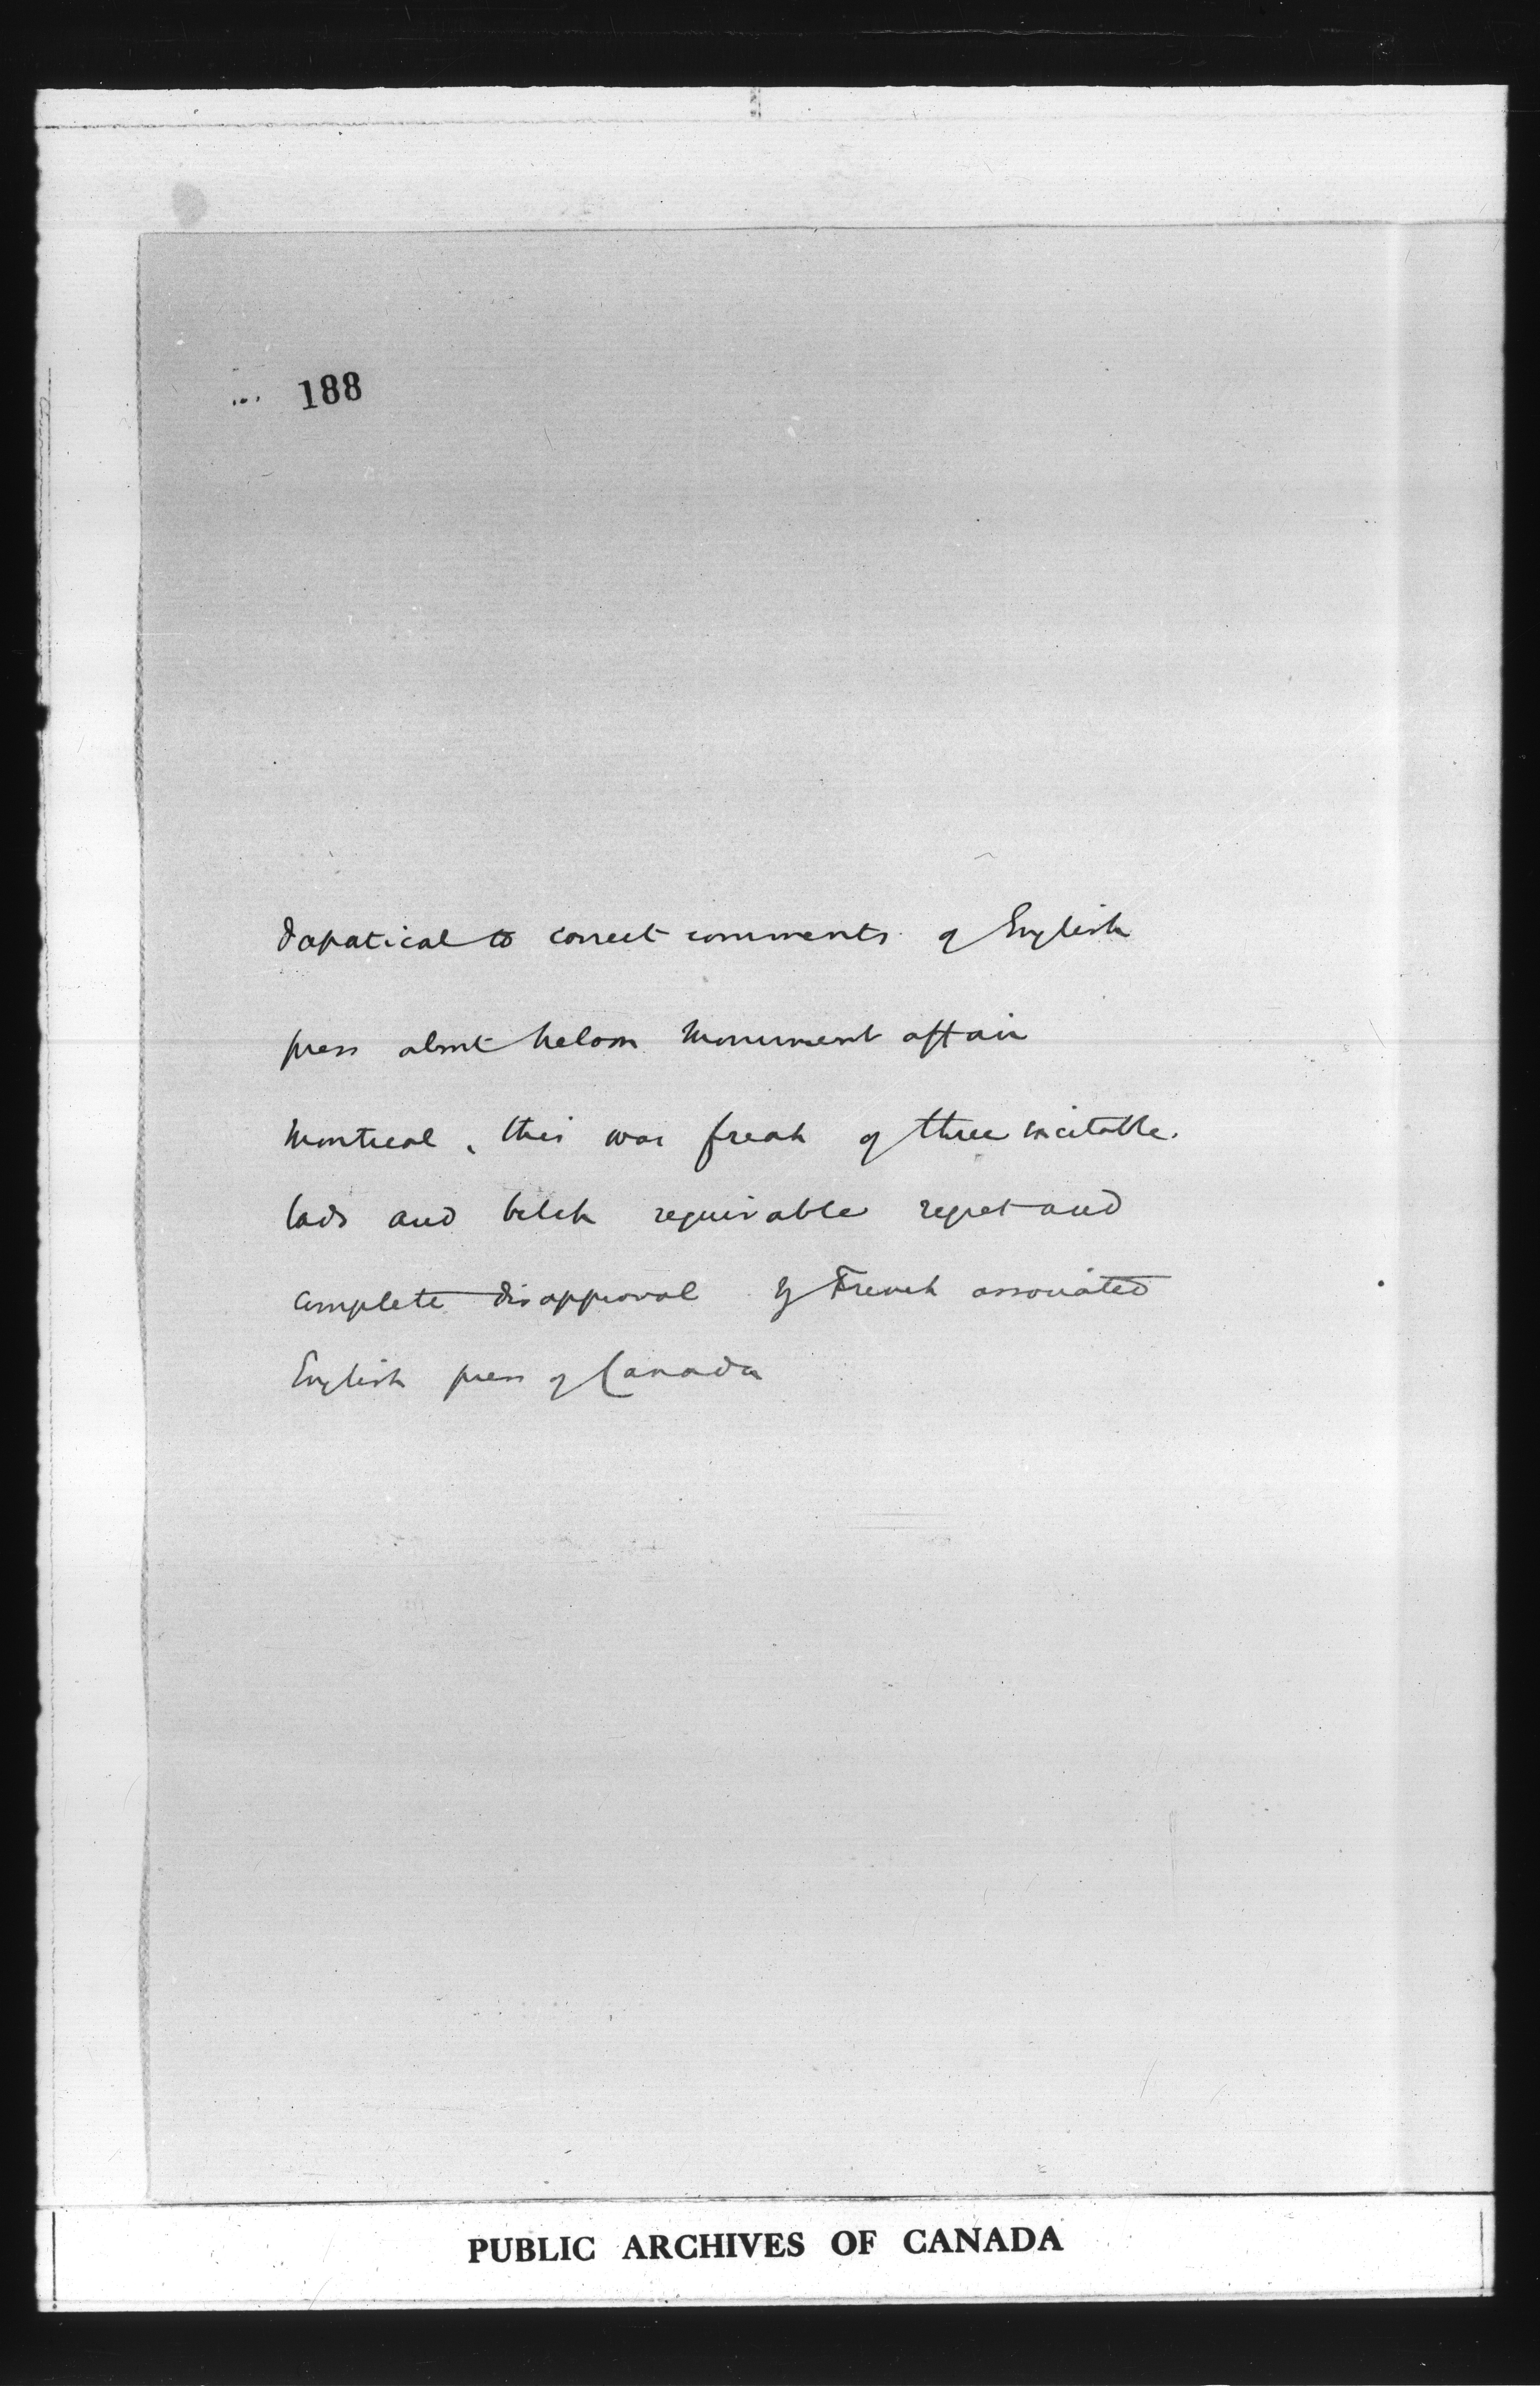 188
dapatical to correct comments of English
press about Nelson Monument affair
Montreal, this was freak of three excitable.
lads and belch requirable regret and
complete disapproval by French associated
English press of Canada
PUBLIC ARCHIVES OF CANADA